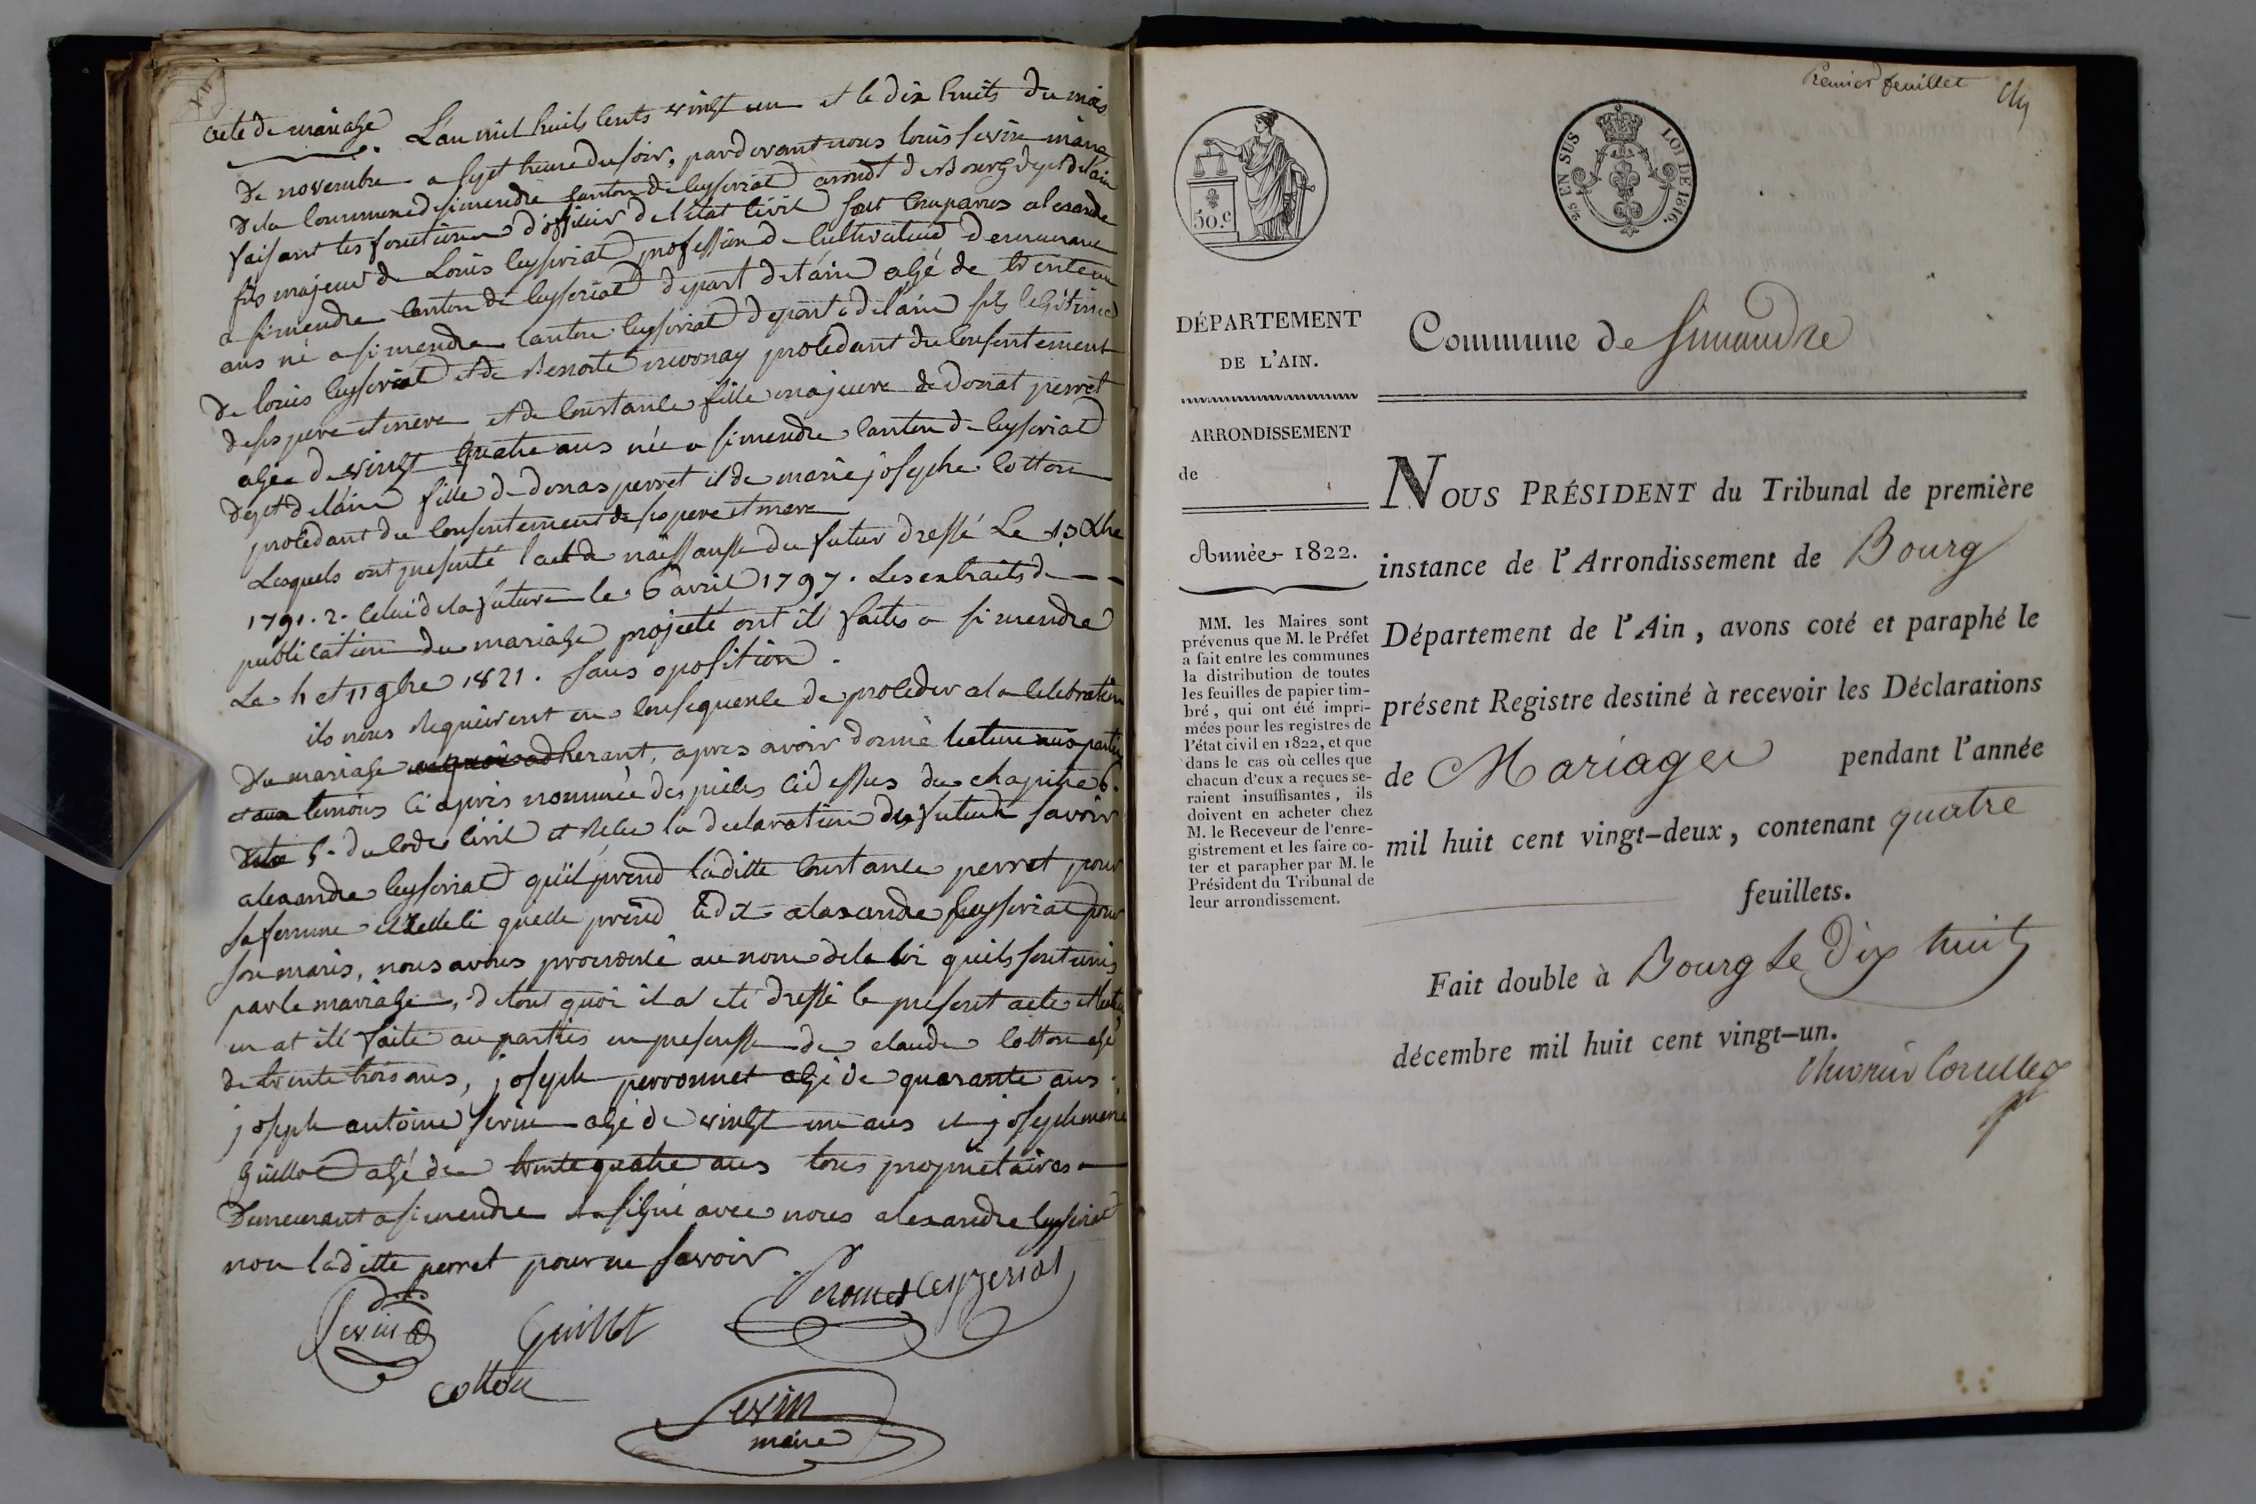 acte de mariage L'an mil huits cents vingt un et le dix huits du mois
de novembre a sept heure du soir, pardevant nous louis sevin maire
de la commune de simendre canton de ceyseriat arrondt de Bourg dept de l'ain
faisant les fonctions d'officier de l'état civil sont comparus alexandre
fils majeur de Louis ceyseriat profession de cultivateur demeurant
a simendre canton de ceyseriat depart de l'ain agé de trente un
ans né a simendre canton ceyseriat depart de l'ain fils legitime
de louis ceyseriat et de Benoite procedant du consentement
de ses pere et mere et de Constance fille majeure de donat perret
agée de vingt quatre ans née a simendre canton de ceyseriat
dept de l'ain fille de donas perret et de marie josephe cotton
procedant du consentement de ses pere et mere
Lesquels ont presenté l'act de naissansse du futur dressé Le
1791. 2. celui de la future le 6 avril 1797. Les extraits de
publication du mariage projeté ont été faites a simendre
Le 4 et 11 9bre 1821. sans oposition.
ils nous requierent en consequence de proceder a la celebration
du mariage adherant, apres avoir donné lecture aux parties
et aux temoins ci apres nommée des pieces ci dessus du chapitre 6.
titre 5. du code civil et reçu la declaration des futurs savoir
alexandre ceyseriat qu'il prend laditte Constance perret pour
sa femme et celle ci quelle prend ledit alaxandre ceyseriat pour
son maris, nous avons prononcé au nom de la loi quils sont unis
par le mariage, de tout quoi il a eté dressé le present acte et lecture
en at été faite au parties en presensse de claude cotton agé
de trente trois ans, joseph perronnet agé de quarante ans.
joseph antoine sevin agé de vingt un ans et joseph marie
guillot agé de trente quatre ans tous propriétaires
Demeurant a simendre et a signé avec nous alexandre ceyseriat
non laditte perret pour ne savoir
Sevin Guillot Peronet ceyzeriat
cotton
Sevin
maire
Premier feuillet
50.c
2/5 EN SUS LOI DE 1816.
DÉPARTEMENT
DE L'AIN.
Commune de Simandre
ARRONDISSEMENT
de
Année 1822.
MM. les Maires sont
prévenus que M. le Préfet
a fait entre les communes
la distribution de toutes
les feuilles de papier tim-
bré, qui ont été impri-
mées pour les registres de
l'état civil en 1822, et que
dans le cas où celles que
chacun d'eux a reçues se-
raient insuffisantes, ils
doivent en acheter chez
M. le Receveur de l'enre-
gistrement et les faire co-
ter et parapher par M. le
Président du Tribunal de
leur arrondissement.
NOUS PRÉSIDENT du Tribunal de première
instance de l'Arrondissement de Bourg
Département de l'Ain, avons coté et paraphé le
présent Registre destiné à recevoir les Déclarations
de Mariages pendant l'année
mil huit cent vingt-deux, contenant quatre
feuillets.
Fait double à Bourg le Dix huit
décembre mil huit cent vingt-un.